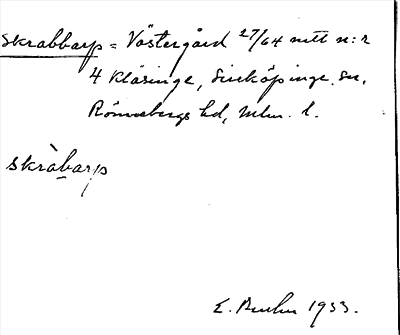 Skrabbarp = Västergård 27/64 mtl n:r
4 Kläsinge, Simköpinge sn,
Rönnebergs hd, Mlm. l.
skràbarp
E. 1933.